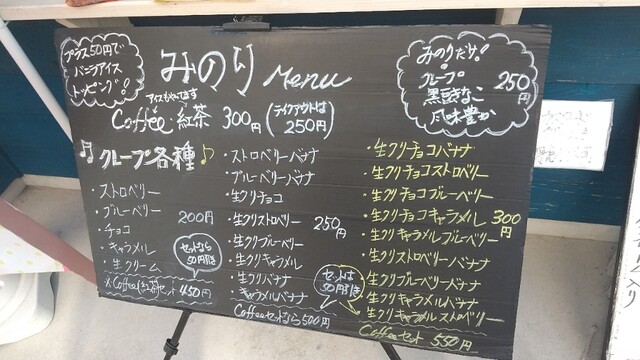 プラス50円で
バニラアイス
トッピング!
みのり Menu
アイスもやってます
Coffee・紅茶 300円 (テイクアウトは
250円)
みのりだけ!
クレープ
黒豆きなこ
250円
風味豊か
クレープ各種
・ストロベリー
・ブルーベリー
・チョコ
・キャラメル
・生クリーム
200円
セットなら
50円引き
※Coffee(紅茶)セット 450円
・ストロベリーバナナ
・ブルーベリーバナナ
・生クリチョコ
・生クリストロベリー
・生クリブルーベリー
・生クリキャラメル
・生クリバナナ
・キャラメルバナナ
250円
セットは
50円引き
Coffeeセットなら500円
・生クリチョコバナナ
・生クリチョコストロベリー
・生クリチョコブルーベリー
・生クリチョコキャラメル
・生クリキャラメルブルーベリー
・生クリストロベリーバナナ
・生クリブルーベリーバナナ
・生クリキャラメルバナナ
・生クリキャラメルストロベリー
300円
Coffeeセット 550円